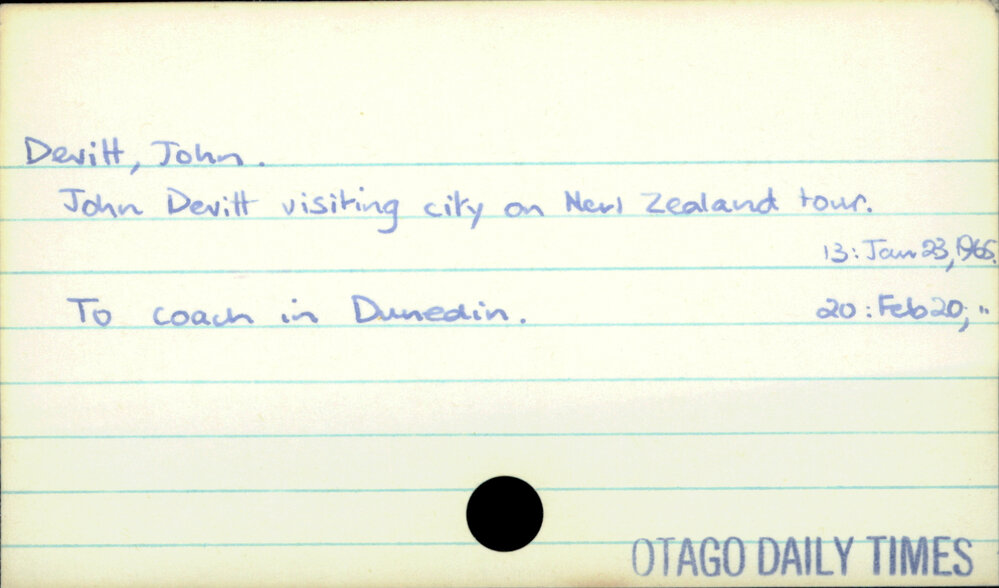 Devitt, John.
John Devitt visiting city on New Zealand tour.
13: Jan 23, 1965.
To coach in Dunedin. 20: Feb 20, "
OTAGO DAILY TIMES